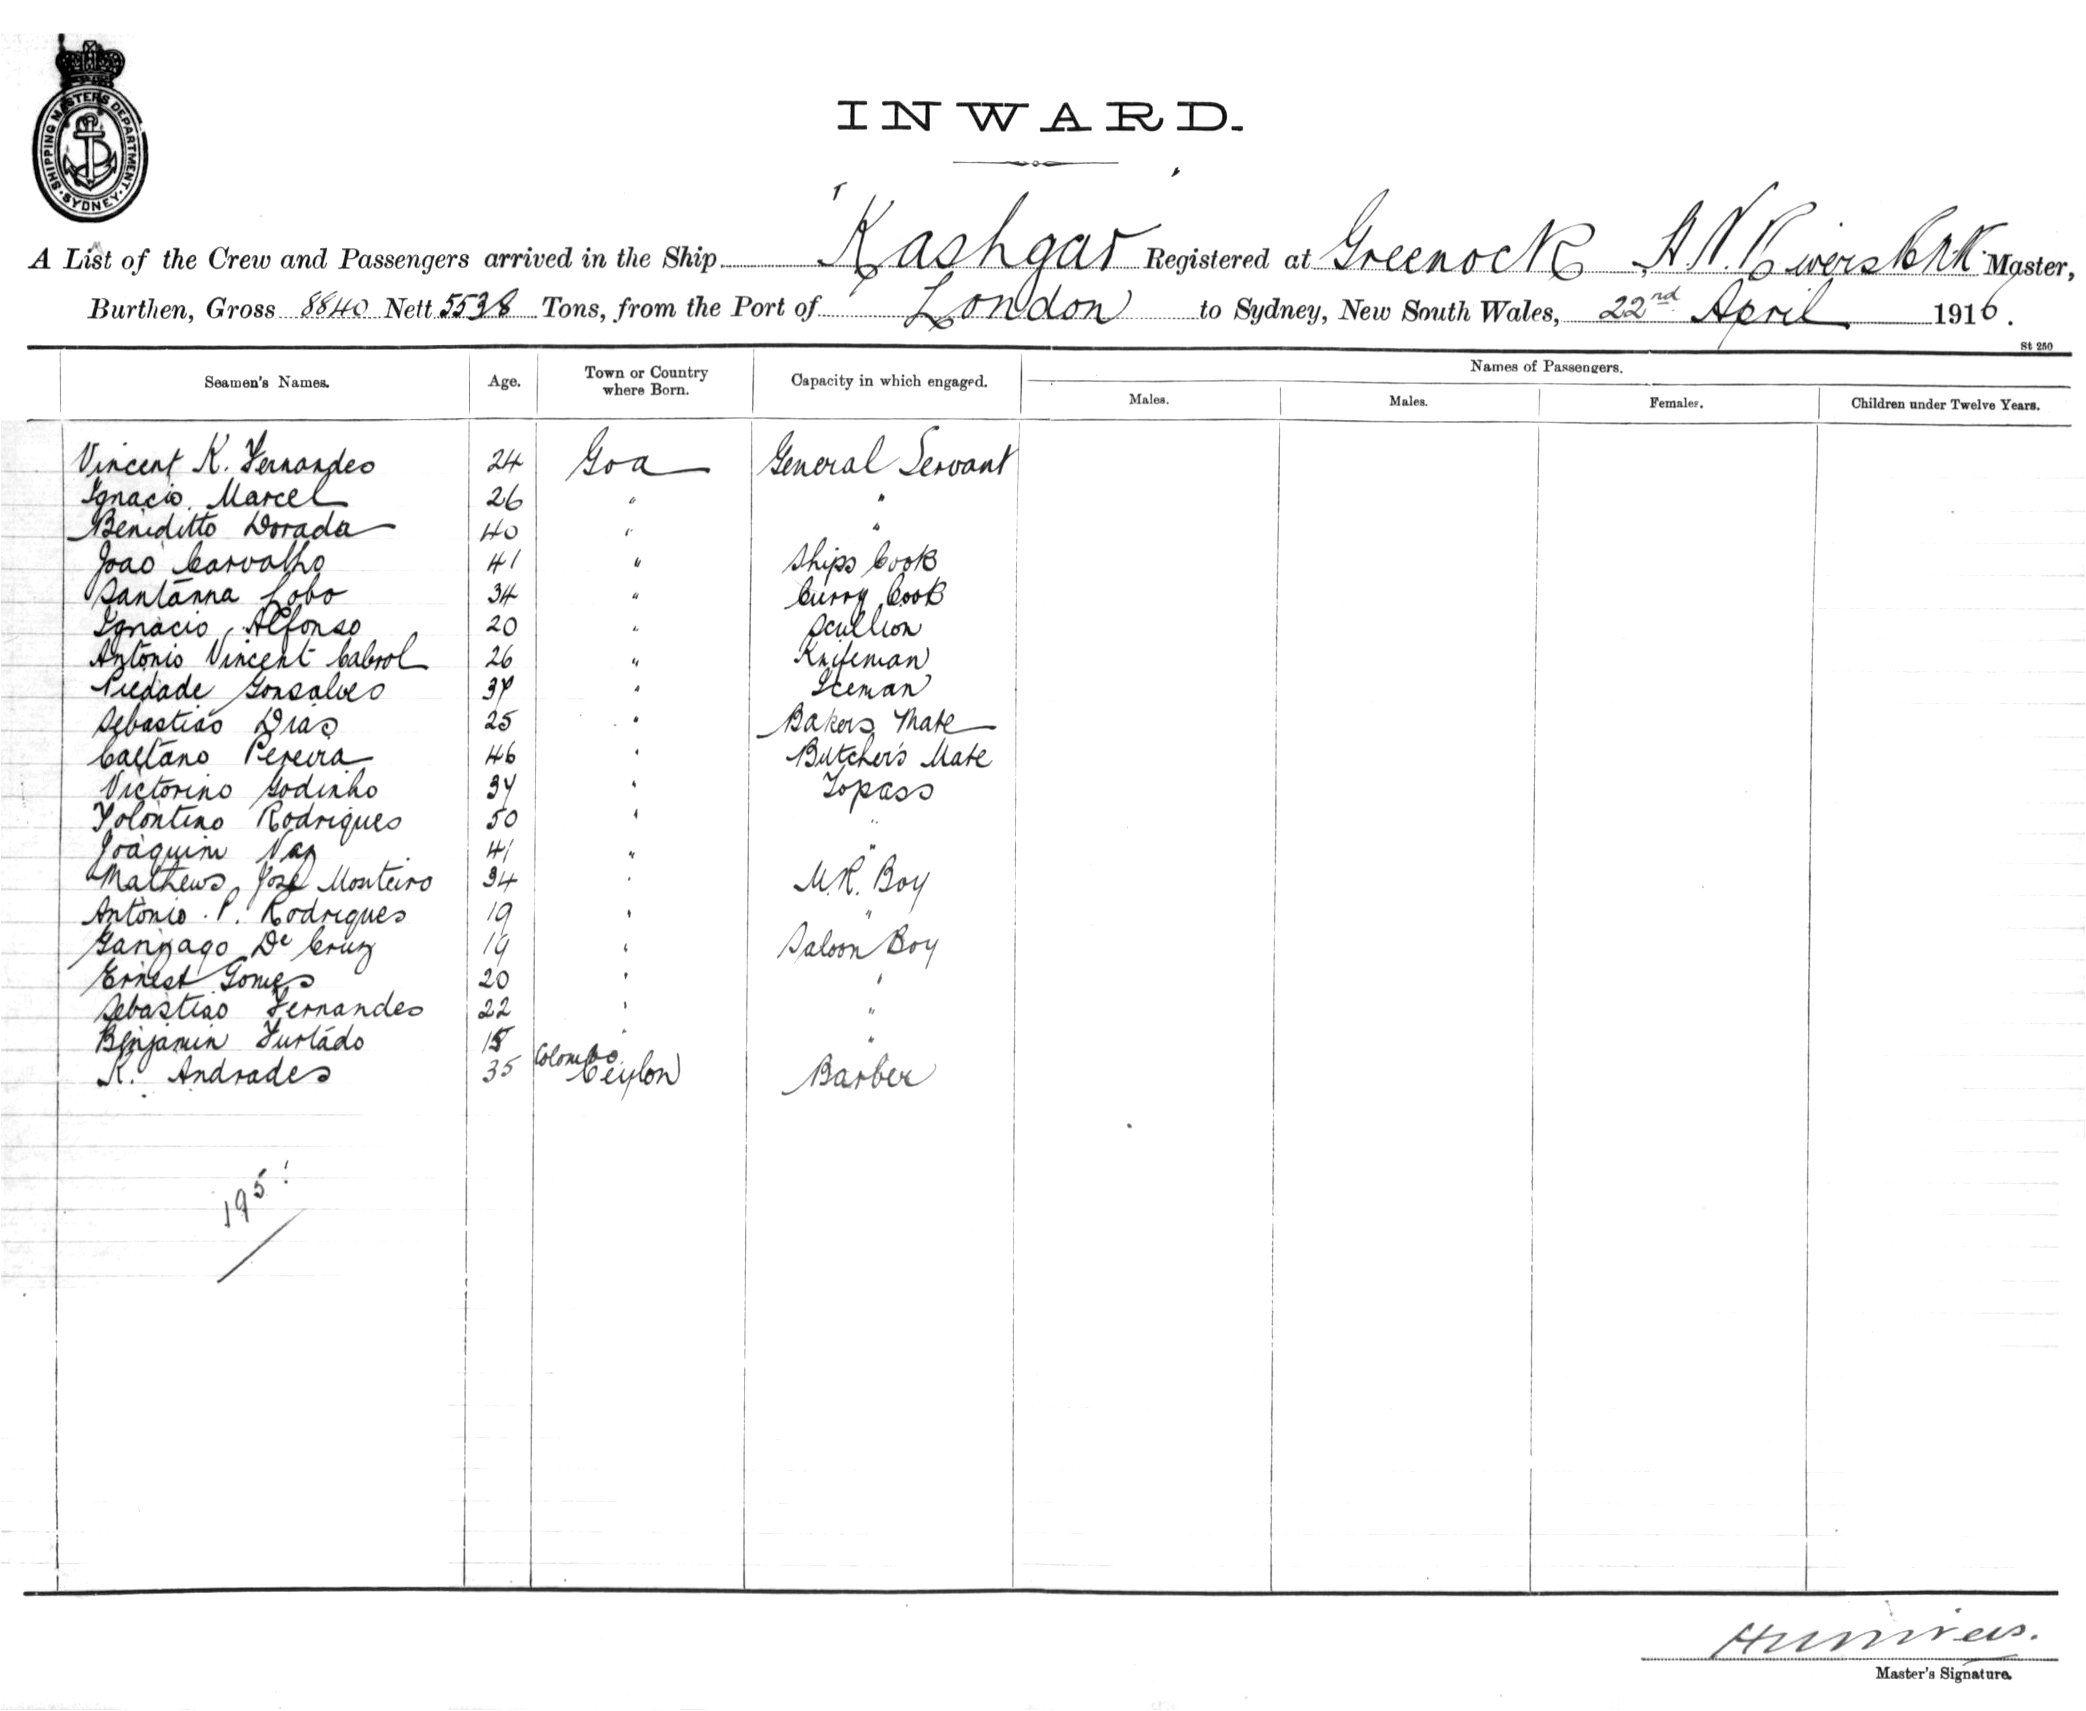 SHIPPING MASTERS DEPARTMENT SYDNEY
INWARD.
A List of the Crew and Passengers arrived in the Ship Kashgar Registered at Greenock A.N. Master,
Burthen, Gross 8840 Nett 5538 Tons, from the Port of London to Sydney, New South Wales, 22nd April 1916.
St 250
Seamen's Names. Age. Town or Country where Born. Capacity in which engaged. Names of Passengers.
Males. Males. Females. Children under Twelve Years.
Vincent K. Fernandes 24 Goa General Servant
Ignacio Marcel 26 " "
Beniditto Dorada 40 " "
Joao Carvalho 41 " Ships Cook
Santanna Lobo 34 " Curry Cook
Ignacio Alfonso 20 " Scullion
Antonio Vincent Cabrol 26 " Knifeman
Piedade Gonsalves " Iceman
Sebastiao Dias 25 " Bakers Mate
Caetano Pereira 46 " Butcher's Mate
Victorino Godinho 34 " Topass
Volontino Rodrigues 50 " "
Joaquim Vaz 41 " "
Mathews José Monteiro 34 " M.R. Boy
Antonio P. Rodrigues 19 " "
De Cruz 19 " Saloon Boy
Ernest Gomes 20 " "
Sebastiao Fernandes 22 " "
Benjamin Furtado " "
K. Andrades 35 Colombo Ceylon Barber
195
Master's Signature.